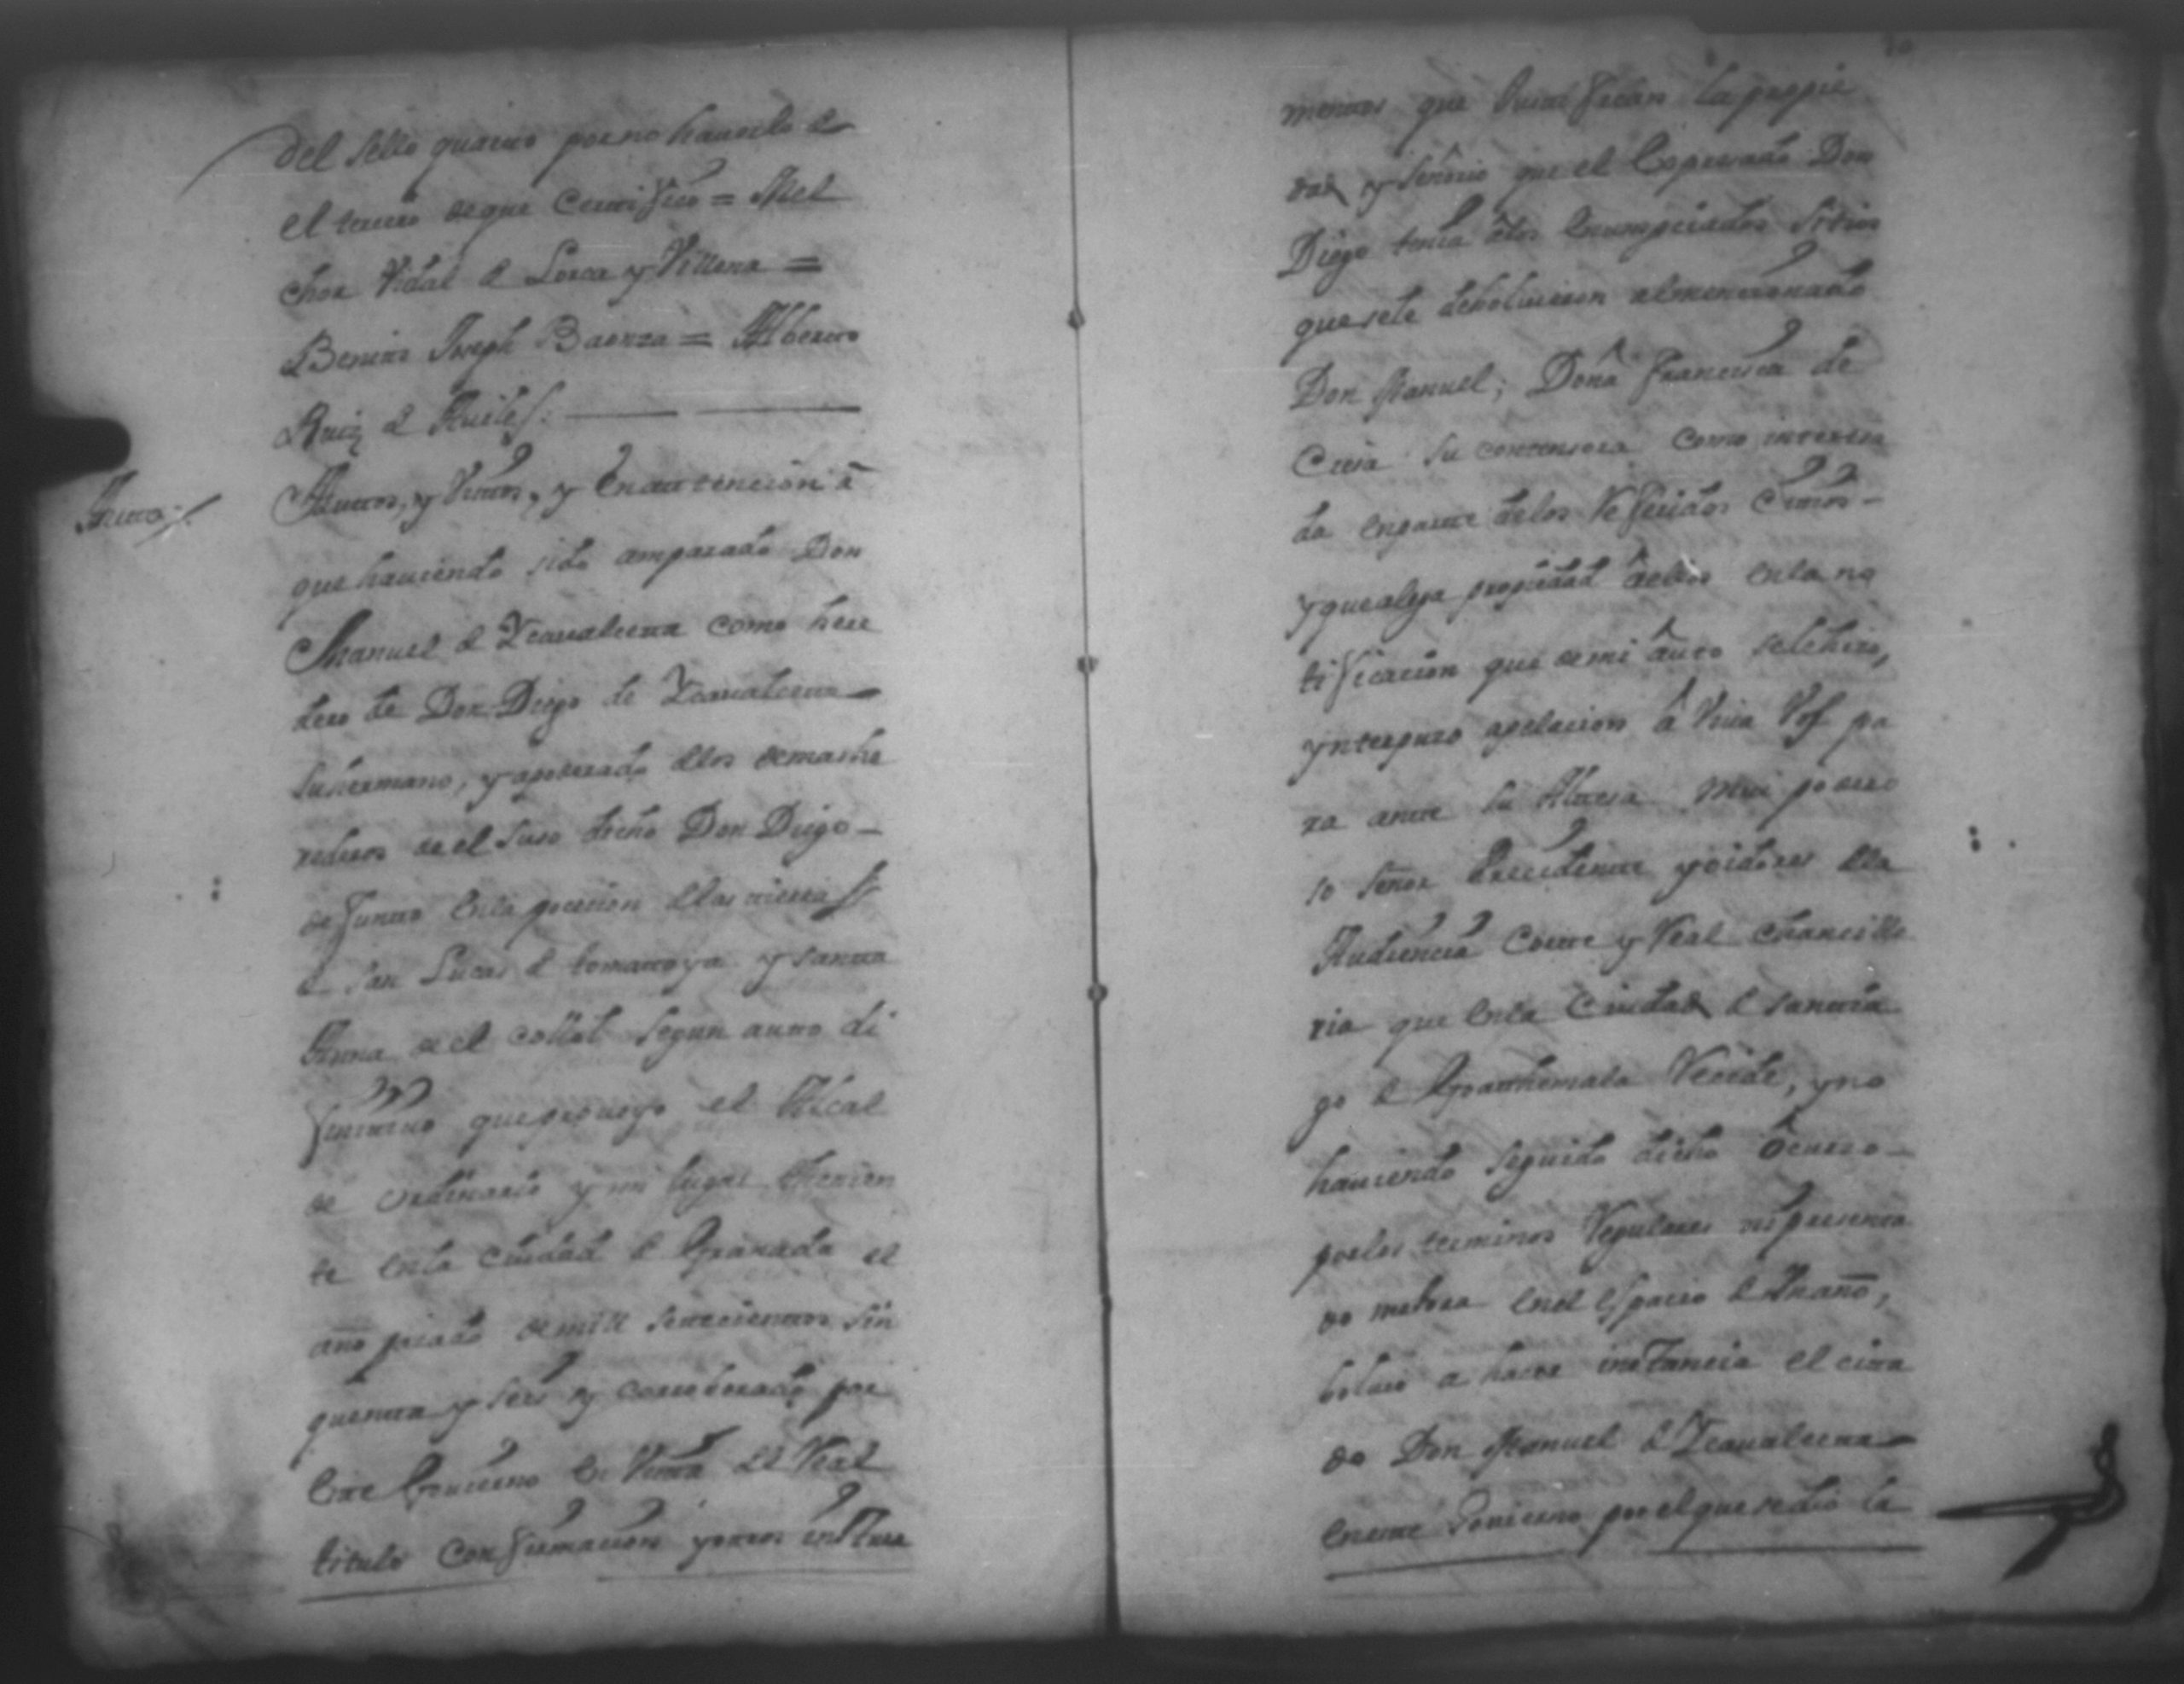 del sello quarto por no hauerlo de
el tercero de que Certifico = Mel
chor Vidal de Lorca y Villena =
Benito Joseph Baonza = Alberto
Ruiz de Auiles:
Autto
Auttos, y Vistos, y en atencion â
que hauiendo sido amparado Don
Manuel de Ycaualzeta como here
dero de Don Diego de Ycaualzeta
su hermano, y apoderado de los demas he
rederos de el suso dicho Don Diego
defunto en la pocecion de las tierras
de San Lucas de tomatoya y santta
Anna de el collol segun autto di
finitiuo que proueyo el Alcal
de ordinario y mi lugar thenien
te en la Ciudad de Granada el
año pasado de mill settecienttos sin
quentta y seis y corroborado por
este Gouierno en Vistta del Real
titulo Confirmacion y otros instru
mentos que Justifican la propie
dad y señorio que el Expresado Don
Diego tenia â los enumpciados sitios
que se le deboluieron al mencionado
Don Manuel; Doña Francisca de
su contensora como interesa
da en parte de los Referidos sitios
y que alega propiedad âellos en la no
tificacion que de mi âuto se le hizo,
ynterpuso apelacion â pa
ra ante su Alteza Mui podero
so señor Precidente y oidores de la
Audiencia Corte y Real chancille
ria que en la Ciudad de santtia
go de Goatthemala Recide, y no
hauiendo seguido dicho ôcurso
por los terminos Regulares ni presenta
do mejora en el espacio de Vn año,
boluio a hacer instancia el cita
do Don Manuel de Ycaualzeta
en este Gouierno por el que se dio la